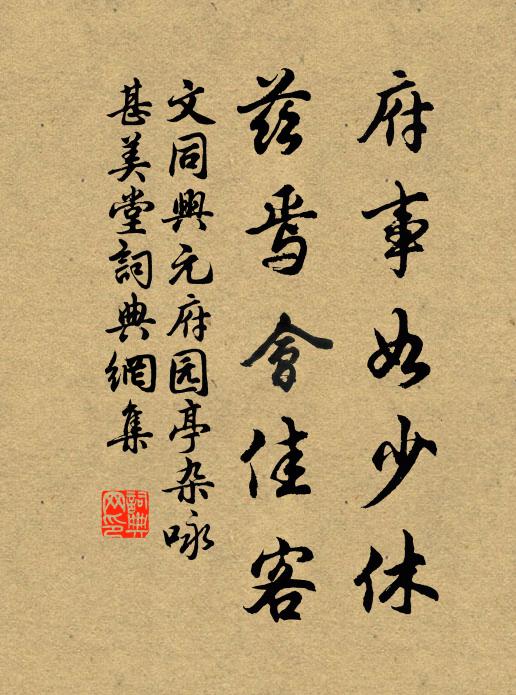 府事如少休
茲焉會佳客
文同興元府园亭杂咏
甚美堂詞典網集
詞典
网印